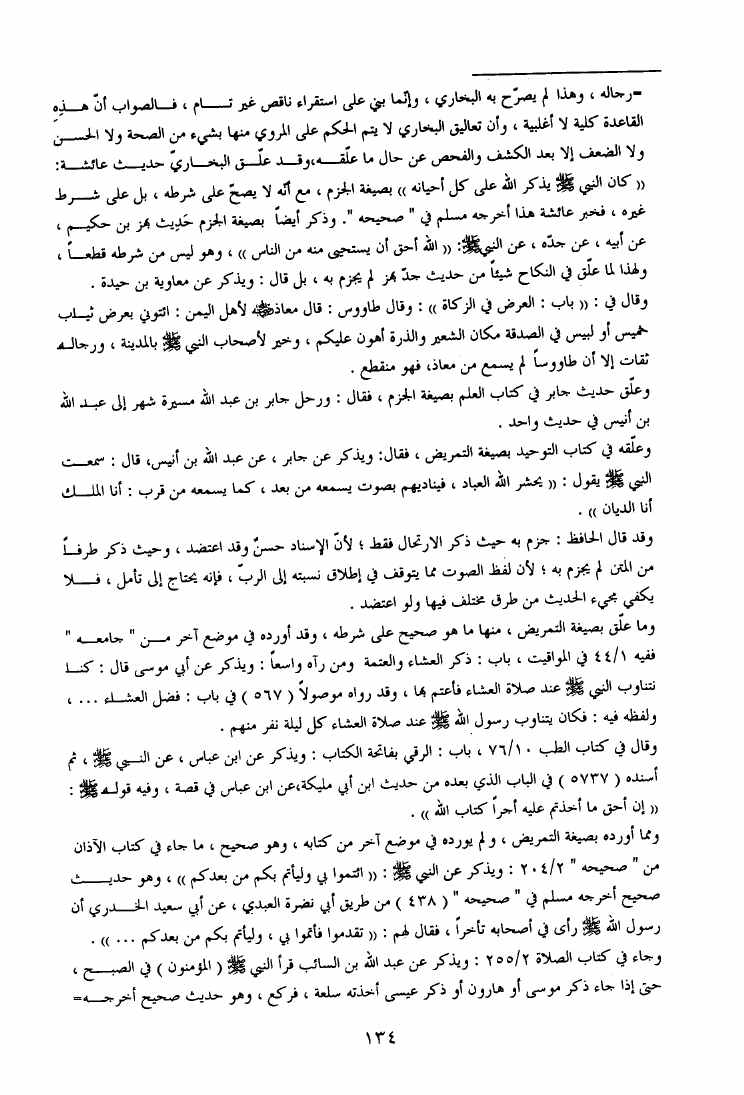 =رجاله ، وهذا لم يصرّح به البخاري ، وإنّما بني على استقراء ناقص غير تـــام ، فـالصواب أنّ هـــذِهِ
القاعدة كلية لا أغلبية ، وأن تعاليق البخاري لا يتم الحكم على المروي منها بشيء من الصحة ولا الحســن
ولا الضعف إلا بعد الكشف والفحص عن حال ما علّقـــه،وقــد علّــق البخــاريّ حديــث عائشــة:
(( كان النبي ﷺ يذكر الله على كل أحيانه )) بصيغة الجزم ، مع أنّه لا يصحّ على شرطه ، بل على شـــرط
غيره ، فخبر عائشة هذا أخرجه مسلم في " صحيحه ". وذكر أيضاً بصيغة الجزم حَدِيث بهز بن حكيــم ،
عن أبيه ، عن جدّه ، عن النبيﷺ: (( الله أحق أن يستحيى منه من الناس )) ، وهو ليس من شرطه قطعــاً ،
ولهذا لما علّق في النكاح شيئاً من حديث جدّ بهز لم يجزم به ، بل قال : ويذكر عن معاوية بن حيدة .
وقال في : (( باب : العرض في الزكاة )) : وقال طاووس : قال معاذ﵁ لأهل اليمن : ائتوني بعرض ثيــاب
خميس أو لبيس في الصدقة مكان الشعير والذرة أهون عليكم ، وخير لأصحاب النبي ﷺ بالمدينة ، ورجالــه
ثقات إلا أن طاووساً لم يسمع من معاذ، فهو منقطع .
وعلّق حديث جابر في كتاب العلم بصيغة الجزم ، فقال : ورحل جابر بن عبد الله مسيرة شهر إلى عبــد الله
بن أنيس في حديث واحد .
وعلّقه في كتاب التوحيد بصيغة التمريض ، فقال: ويذكر عن جابر ، عن عبد الله بن أنيس، قال : سمعــت
النبي ﷺ يقول : (( يحشر الله العباد ، فيناديهم بصوت يسمعه من بعد ، كما يسمعه من قرب : أنا الملــك
أنا الديان )) .
وقد قال الحافظ : جزم به حيث ذكر الارتحال فقط ؛ لأنّ الإسناد حسنٌ وقد اعتضد ، وحيث ذكر طرفــاً
من المتن لم يجزم به ؛ لأن لفظ الصوت مما يتوقف في إطلاق نسبته إلى الربّ ، فإنه يحتاج إلى تأمل ، فـــلا
يكفي مجيء الحديث من طرق مختلف فيها ولو اعتضد .
وما علّق بصيغة التمريض ، منها ما هو صحيح على شرطه ، وقد أورده في موضع آخر مـــن " جامعــه "
ففيه ٤٤/١ في المواقيت ، باب : ذكر العشاء والعتمة ومن رآه واسعاً : ويذكر عن أبي موسى قال : كنــا
نتناوب النبي ﷺ عند صلاة العشاء فأعتم بها ، وقد رواه موصولاً ( ٥٦٧ ) في باب : فضل العشــاء ... ،
ولفظه فيه : فكان يتناوب رسول الله ﷺ عند صلاة العشاء كل ليلة نفر منهم .
وقال في كتاب الطب ٧٦/١٠ ، باب : الرقي بفاتحة الكتاب : ويذكر عن ابن عباس ، عن النــبي ﷺ ، ثم
أسنده ( ٥٧٣٧ ) في الباب الذي بعده من حديث ابن أبي مليكة،عن ابن عباس في قصة ، وفيه قولــه ﷺ :
(( إن أحق ما أخذتم عليه أجراً كتاب الله )) .
ومما أورده بصيغة التمريض ، ولم يورده في موضع آخر من كتابه ، وهو صحيح ، ما جاء في كتاب الآذان
من " صحيحه " ٢٠٤/٢ : ويذكر عن النبي ﷺ : (( ائتموا بي وليأتم بكم من بعدكم )) ، وهو حديـــث
صحيح أخرجه مسلم في " صحيحه " ( ٤٣٨ ) من طريق أبي نضرة العبدي ، عن أبي سعيد الخــدري أن
رسول الله ﷺ رأى في أصحابه تأخراً ، فقال لهم : (( تقدموا فأتموا بي ، وليأتم بكم من بعدكم ... )) .
وجاء في كتاب الصلاة ٢٥٥/٢ : ويذكر عن عبد الله بن السائب قرأ النبي ﷺ ( المؤمنون ) في الصبــح ،
حتى إذا جاء ذكر موسى أو هارون أو ذكر عيسى أخذته سلعة ، فركع ، وهو حديث صحيح أخرجــه=
١٣٤